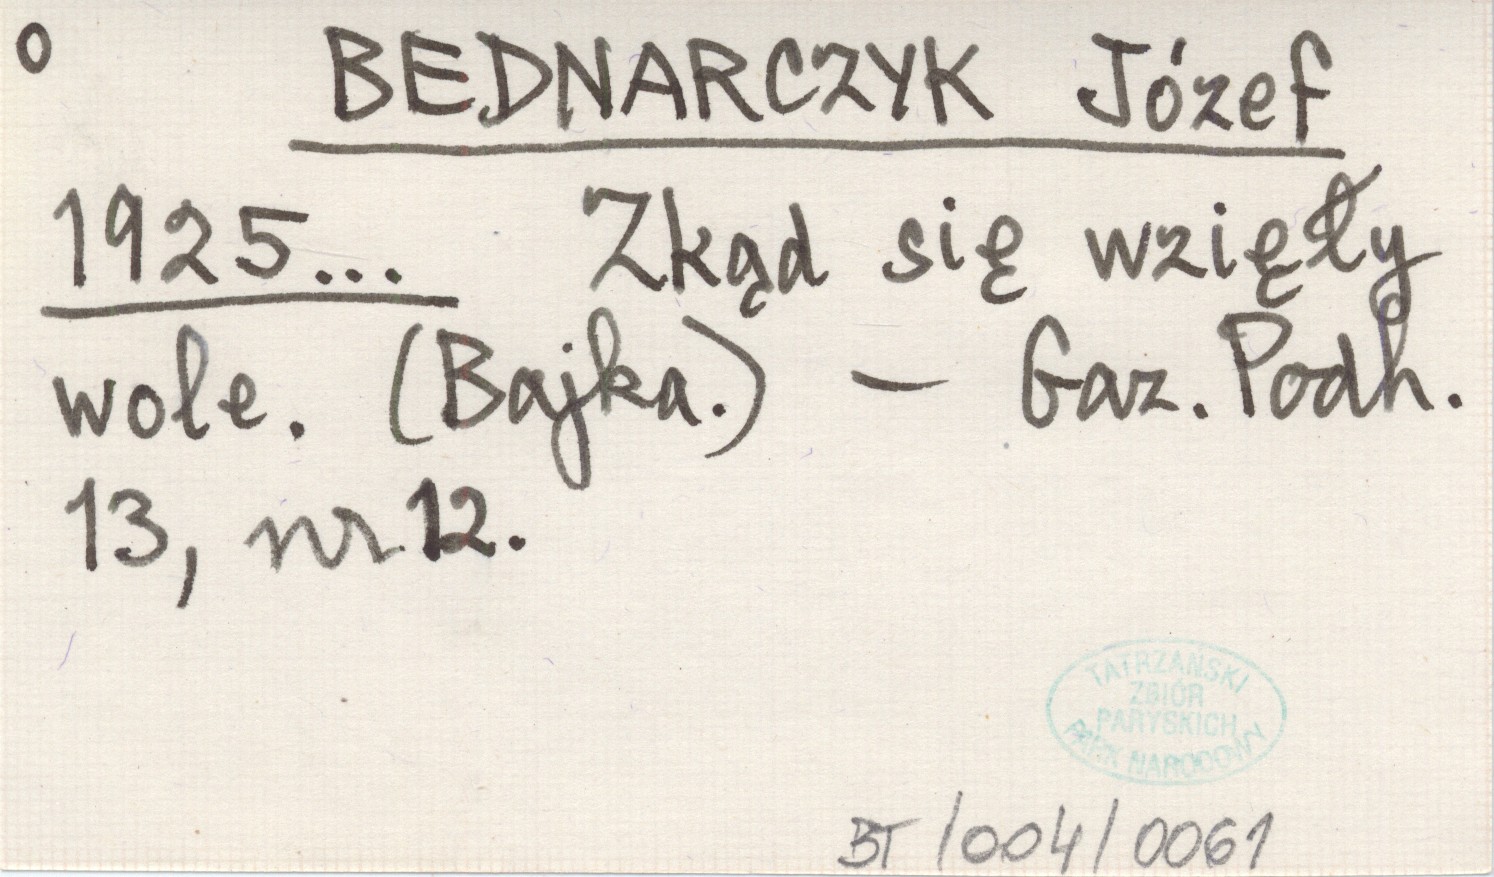 o BEDNARCZYK Józef
1925... Zkąd się wzięły
wole. (Bajka.) – Gaz. Podh.
13, nr 12.
TATRZAŃSKI
ZBIÓR
PARYSKICH
PARK NARODOWY
BT/004/0061